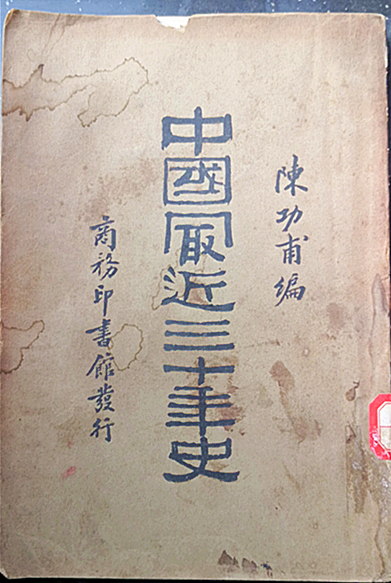 陳功甫編
中國冣近三十年史
商務印書館發行